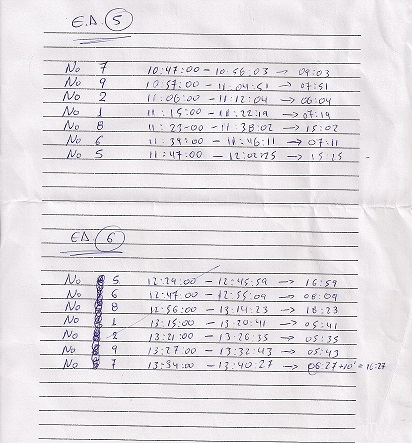 Ε.Δ. 5
No 7 10:47:00 - 10:56:03 → 09:03
No 9 10:57:00 - 11:04:51 → 07:51
No 2 11:06:00 - 11:12:04 → 06:04
No 1 11:15:00 - 11:22:19 → 07:19
No 8 11:23:00 - 11:38:02 → 15:02
No 6 11:39:00 - 11:46:11 → 07:11
No 5 11:47:00 - 12:02:15 → 15:15
Ε.Δ. 6
No 5 12:29:00 - 12:45:59 → 16:59
No 6 12:47:00 - 12:55:09 → 08:09
No 8 12:56:00 - 13:14:23 → 18:23
No 1 13:15:00 - 13:20:41 → 05:41
No 2 13:21:00 - 13:26:35 → 05:35
No 9 13:27:00 - 13:32:43 → 05:43
No 7 13:34:00 - 13:40:27 → 06:27 +10' = 16:27